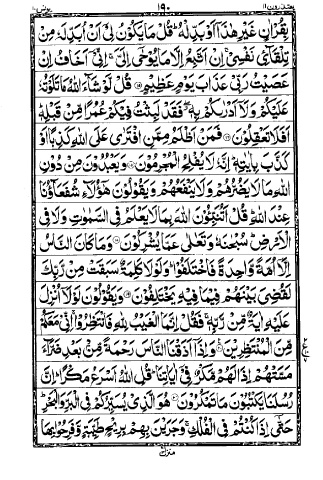 يعتذرون ١١ ١٩٠ يونس ١٠
بِقُرْاٰنٍ غَيْرِ هٰذَآ اَوْ بَدِّلْهُ ؕ قُلْ مَا يَكُوْنُ لِيْٓ اَنْ اُبَدِّلَهٗ مِنْ
تِلْقَآئِ نَفْسِيْ ۚ اِنْ اَتَّبِعُ اِلَّا مَا يُوْحٰۤى اِلَيَّ ۚ اِنِّيْٓ اَخَافُ اِنْ
عَصَيْتُ رَبِّيْ عَذَابَ يَوْمٍ عَظِيْمٍ ۝ قُلْ لَّوْ شَآءَ اللّٰهُ مَا تَلَوْتُهٗ
عَلَيْكُمْ وَلَآ اَدْرٰىكُمْ بِهٖ ۖ فَقَدْ لَبِثْتُ فِيْكُمْ عُمُرًا مِّنْ قَبْلِهٖ ؕ
اَفَلَا تَعْقِلُوْنَ ۝ فَمَنْ اَظْلَمُ مِمَّنِ افْتَرٰى عَلَى اللّٰهِ كَذِبًا اَوْ
كَذَّبَ بِاٰيٰتِهٖ ؕ اِنَّهٗ لَا يُفْلِحُ الْمُجْرِمُوْنَ ۝ وَيَعْبُدُوْنَ مِنْ دُوْنِ
اللّٰهِ مَا لَا يَضُرُّهُمْ وَلَا يَنْفَعُهُمْ وَيَقُوْلُوْنَ هٰٓؤُلَآءِ شُفَعَآؤُنَا
عِنْدَ اللّٰهِ ؕ قُلْ اَتُنَبِّـُٔوْنَ اللّٰهَ بِمَا لَا يَعْلَمُ فِي السَّمٰوٰتِ وَلَا فِي
الْاَرْضِ ؕ سُبْحٰنَهٗ وَتَعٰلٰى عَمَّا يُشْرِكُوْنَ ۝ وَمَا كَانَ النَّاسُ
اِلَّآ اُمَّةً وَّاحِدَةً فَاخْتَلَفُوْا ؕ وَلَوْلَا كَلِمَةٌ سَبَقَتْ مِنْ رَّبِّكَ
لَقُضِيَ بَيْنَهُمْ فِيْمَا فِيْهِ يَخْتَلِفُوْنَ ۝ وَيَقُوْلُوْنَ لَوْلَآ اُنْزِلَ
عَلَيْهِ اٰيَةٌ مِّنْ رَّبِّهٖ ۚ فَقُلْ اِنَّمَا الْغَيْبُ لِلّٰهِ فَانْتَظِرُوْا ۚ اِنِّيْ مَعَكُمْ
مِّنَ الْمُنْتَظِرِيْنَ ۝ وَاِذَآ اَذَقْنَا النَّاسَ رَحْمَةً مِّنْۢ بَعْدِ ضَرَّآءَ
مَسَّتْهُمْ اِذَا لَهُمْ مَّكْرٌ فِيْٓ اٰيَاتِنَا ؕ قُلِ اللّٰهُ اَسْرَعُ مَكْرًا ؕ اِنَّ
رُسُلَنَا يَكْتُبُوْنَ مَا تَمْكُرُوْنَ ۝ هُوَ الَّذِيْ يُسَيِّرُكُمْ فِي الْبَرِّ وَالْبَحْرِ ؕ
حَتّٰٓى اِذَا كُنْتُمْ فِي الْفُلْكِ ۚ وَجَرَيْنَ بِهِمْ بِرِيْحٍ طَيِّبَةٍ وَّفَرِحُوْا بِهَا
منزل ٣